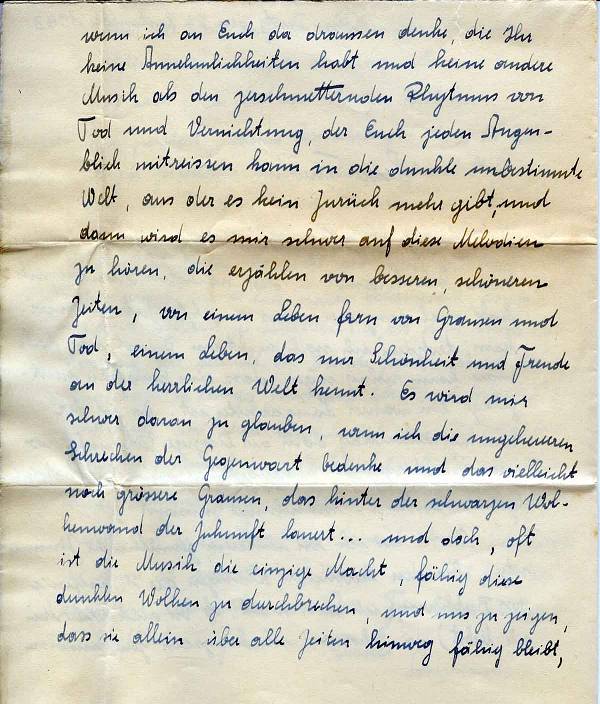 wenn ich an Euch da draussen denke, die Ihr
keine Annehmlichkeiten habt und keine andere
Musik als den zerschmetternden Rhytmus von
Tod und Vernichtung, der Euch jeden Augen-
blick mitreissen kann in die dunkle unbestimmte
Welt, aus der es kein Zurück mehr gibt, und
dann wird es mir schwer auf diese Melodien
zu hören, die erzählen von besseren, schöneren
Zeiten, von einem Leben fern von Grausen und
Tod, einem Leben, das nur Schönheit und Freude
an der herrlichen Welt kennt. Es wird mir
schwer daran zu glauben, wenn ich die ungeheueren
Schrecken der Gegenwart bedenke und das vielleicht
noch grössere Grausen, das hinter der schwarzen Wol-
kenwand der Zukunft lauert... und doch, oft
ist die Musik die einzige Macht, fähig diese
dunklen Wolken zu durchbrechen, und uns zu zeigen,
dass sie allein über alle Zeiten hinweg fähig bleibt,